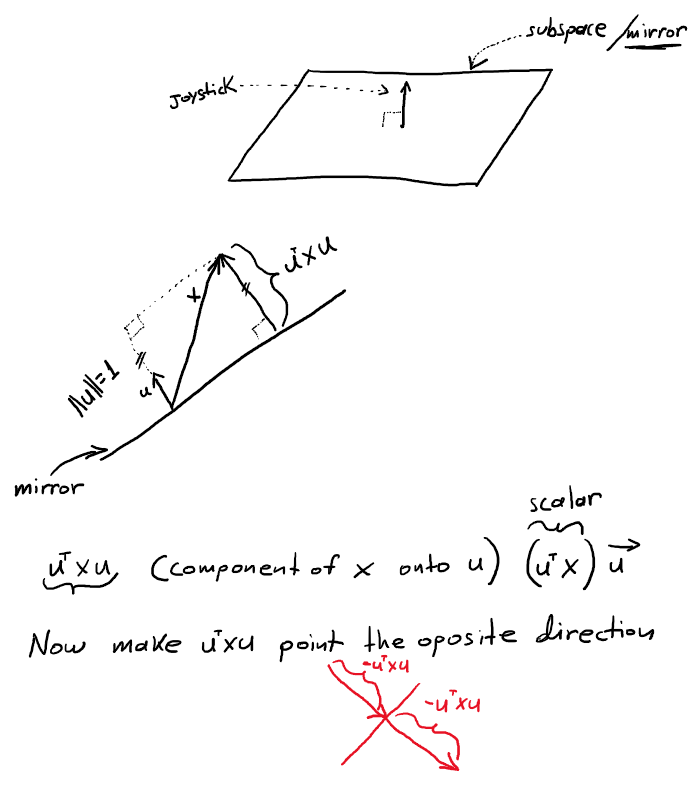 subspace/mirror
Joystick
uᵀxu
x
||u||=1
u
mirror
scalar
uᵀxu (component of x onto u) (uᵀx) u
Now make uᵀxu point the oposite direction
-uᵀxu
-uᵀxu